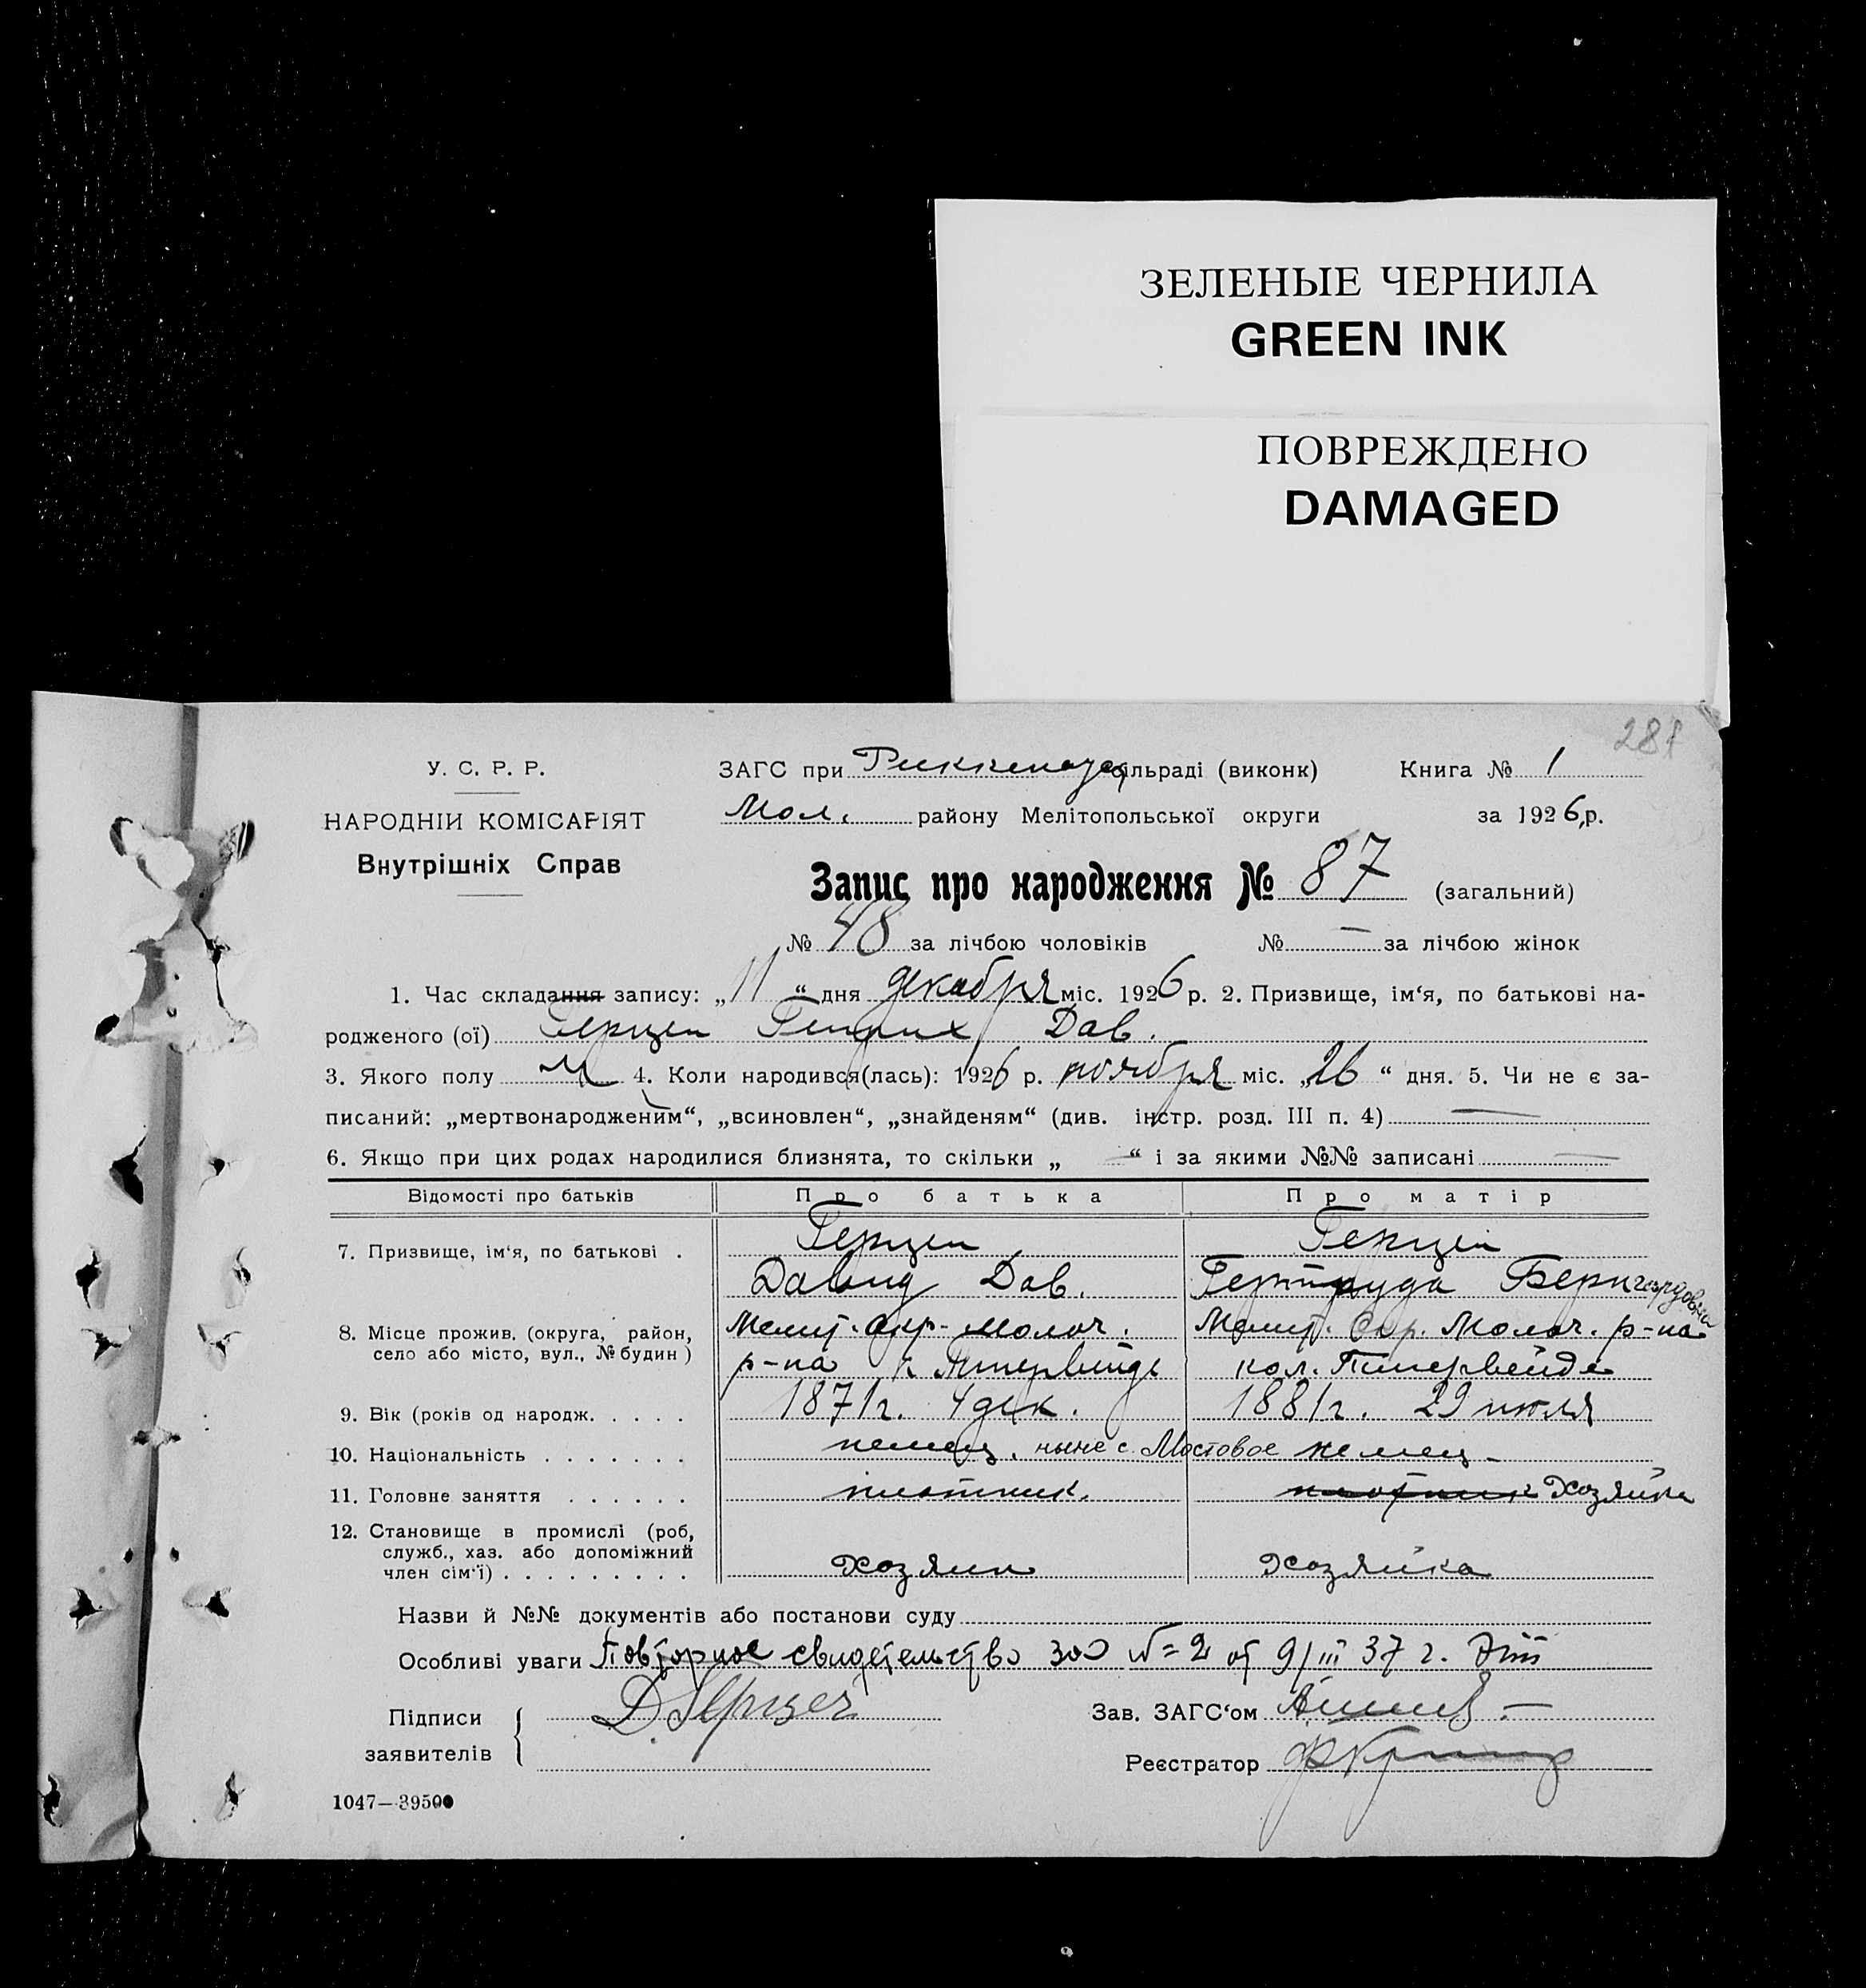 ЗЕЛЕНЫЕ ЧЕРНИЛА
GREEN INK
ПОВРЕЖДЕНО
DAMAGED
287
У. С. Р. Р.
НАРОДНІЙ КОМІСАРІЯТ
Внутрішніх Справ
ЗАГС при сільраді (виконк) Книга № 1
Мол. району Мелітопольської округи за 1926 р.
Запис про народження № 87 (загальний)
№ 48 за лічбою чоловіків № — за лічбою жінок
1. Час складання запису: „11“ дня декабря міс. 1926 р. 2. Призвище, ім‘я, по батькові на-
родженого (ої) Герцен Генрих Дав.
3. Якого полу М 4. Коли народився(лась): 1926 р. ноября міс. „26“ дня. 5. Чи не є за-
писаний: „мертвонародженим“, „всиновлен“, „знайденям“ (див. інстр. розд. III п. 4) —
6. Якщо при цих родах народилися близнята, то скільки „ — “ і за якими №№ записані —
Відомості про батьків Про батька Про матір
7. Призвище, ім‘я, по батькові . Герцен Герцен
Давид Дав. Гертруда Бернгардовна
8. Місце прожив. (округа, район, Мелит. окр. Молоч. Мелит. Окр. Молоч. р-на
село або місто, вул., № будин) р-на к. кол. Гнаденвейде
9. Вік (років од народж. . . . . 1871 г. 4 дек. 1881 г. 29 июля
10. Національність . . . . . . . немец. ныне с. Мостовое немец
11. Головне заняття . . . . . . плотник. плотник Хозяйка
12. Становище в промислі (роб,
служб., хаз. або допоміжний
член сім‘ї) . . . . . . . . . хозяин хозяйка
Назви й №№ документів або постанови суду
Особливі уваги Повторное свидетельство зао № 2 от 9/III 37 г.
Підписи Д. Герцен Зав. ЗАГС‘ом
заявителів Реєстратор
1047—39500